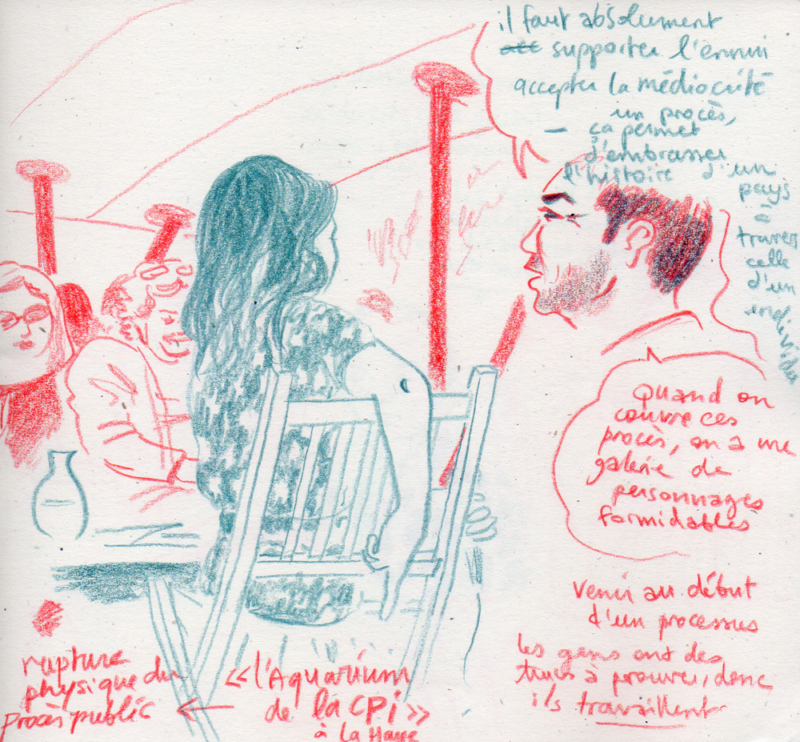 il faut absolument
supporter l'ennui
accepter la médiocrité
un procès,
— ça permet
d'embrasser
l'histoire d'un
pays
à
travers
celle
d'un
individu
Quand on
couvre ces
procès, on a une
galerie de
personnages
formidables
venir au début
d'un processus
les gens ont des
trucs à prouver, donc
ils travaillent
rupture
physique du
procès public ←
«l'Aquarium
de la CPi»
à la Haye